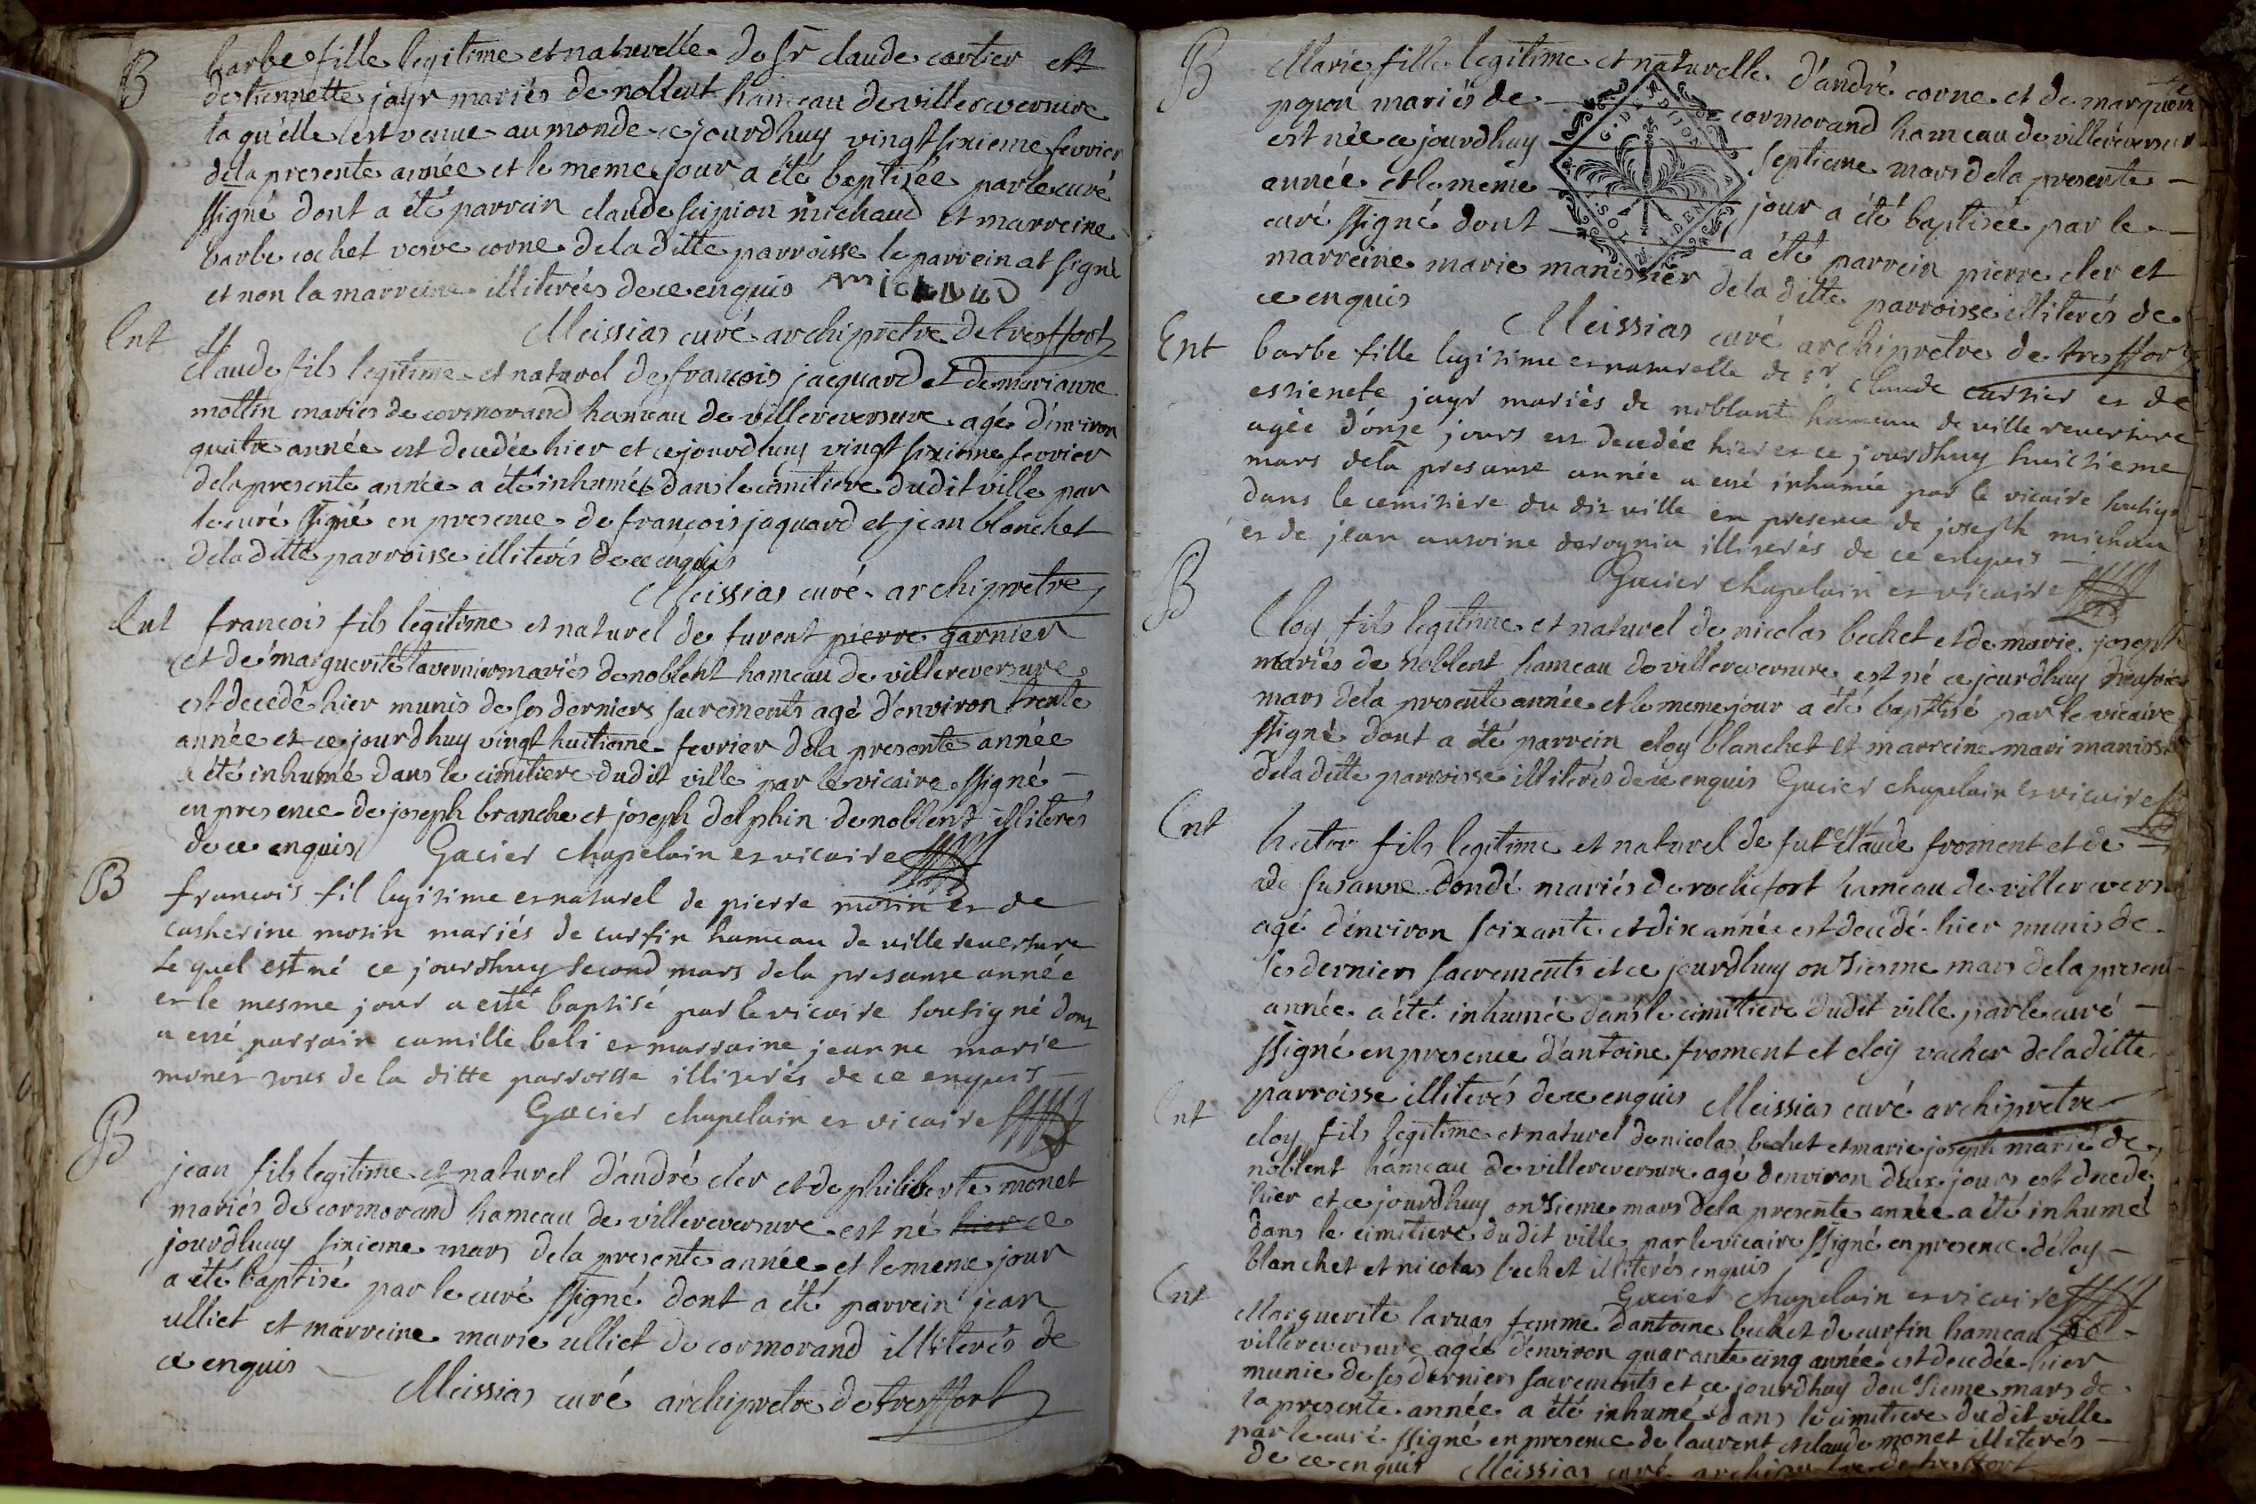 B
barbe fille legitime et naturelle de Sr claude cartier et
detiennette jayr mariés de noblent hameau de villereversure
laquelle est venue au monde ce jourdhuy vingt sixieme fevrier
dela presente année et le meme jour a été baptisée par le curé
ssigné dont a été parrein claude scipion michaud et marreine
barbe cochet veuve corne dela ditte parroisse le parrein at signé
et non la marreine illiterés de ce enquis michaud
Meissias curé archipretre de tresffort
Ent
Claude fils legitime et naturel de francois jacquard et de marianne
mottin mariés de cormorand hameau de villereversure agé d'environ
quatre année est decedée hier et ce jourdhuy vingt sixieme fevrier
dela presente année a été inhumé dans le cimitiere dudit ville par
le curé ssigné en presence de francois jaquard et jean blanchet
dela ditte parroisse illiterés de ce enquis
Meissias curé archipretre
Ent
francois fils legitime et naturel de furent pierre garnier
et de marguerite tavernier mariés de noblent hameau de villereversure
est decedé hier munis de ses derniers sacrements agé d'environ trente
année et ce jourdhuy vingt huitieme fevrier dela presente année
a été inhumé dans le cimitiere dudit ville par le vicaire ssigné
en presence de joseph branche et joseph delphin de noblent illiterés
de ce enquis Gacier chapelain et vicaire
B
francois fil legitime et naturel de pierre morin et de
catherine morin mariés de curfin hameau de ville reversure
le quel est né ce jourdhuy second mars dela presante année
et le mesme jour a esté baptisé par le vicaire soutigné dont
a eté parrain camille beli et marraine jeanne marie
monet tous de la ditte parroisse illiterés de ce enquis
Gacier chapelain et vicaire
B
jean fils legitime et naturel d'andré cler et de philiberte monet
mariés de cormorand hameau de villereversure est né hier ce
jourdhuy sixieme mars dela presente année et le meme jour
a été baptisé par le curé ssigné dont a été parrein jean
ulliet et marreine marie ulliet de cormorand illiterés de
ce enquis
Meissias curé archipretre de tresffort
B
Marie fille legitime et naturelle d'andré corne et de marguerite
pyron mariés de cormorand hameau de villereversure
est née ce jourdhuy septieme mars dela presente
année et le meme jour a été baptisée par le
curé ssigné dont a été parrein pierre cler et
marreine marie manissier dela ditte parroisse illiterés de
ce enquis
Meissias curé archipretre de tresffort
Ent
barbe fille legitime et naturelle de sr claude cartier et de
estienete jayr mariés de noblant hameau de ville reversure
agée d'onze jours est decedée hier et ce jourdhuy huictieme
mars dela presante année a eté inhumée par le vicaire soutigné
dans le cemitiere du dit ville en presence de joseph michau
et de jean antoine illiterés de ce enquis
Gacier chapelain et vicaire
B
Eloy fils legitime et naturel de nicolas bechet et de marie joseph
mariés de noblent hameau de villereversure est né ce jourdhuy
mars dela presente année et le meme jour a été baptisé par le vicaire
ssigné dont a été parrein eloy blanchet et marreine mari manissier
dela ditte parroisse illiterés de ce enquis Gacier chapelain et vicaire
Ent
hector fils legitime et naturel de fut claude froment et de
de susanne dondé mariés de rochefort hameau de villereversure
agé d'environ soixante et dix année est decedé hier munis de
ses derniers sacrements et ce jourdhuy onzieme mars dela presente
année a été inhumée dans le cimitiere dudit ville par le curé
ssigné en presence d'antoine froment et eloy vacher dela ditte
parroisse illiterés de ce enquis Meissias curé archipretre
Ent
eloy fils legitime et naturel de nicolas bechet et marie joseph marié de
noblent hameau de villereversure agé d'environ deux jours est decedé
hier et ce jourdhuy onzieme mars dela presente année a été inhumé
dans le cimitiere dudit ville par le vicaire ssigné en presence d'eloy
blanchet et nicolas bechet illiterés enquis
Gacier chapelain et vicaire
Ent
Marguerite laruas femme d'antoine bechet de curfin hameau de
villereversure agée d'environ quarante cinq année est decedée hier
munie de ses derniers sacrements et ce jourdhuy douzieme mars de
la presente année a été inhumé dans le cimitiere dudit ville
par le curé ssigné en presence de laurent et claude monet illiterés
de ce enquis Meissias curé archipretre de tresffort